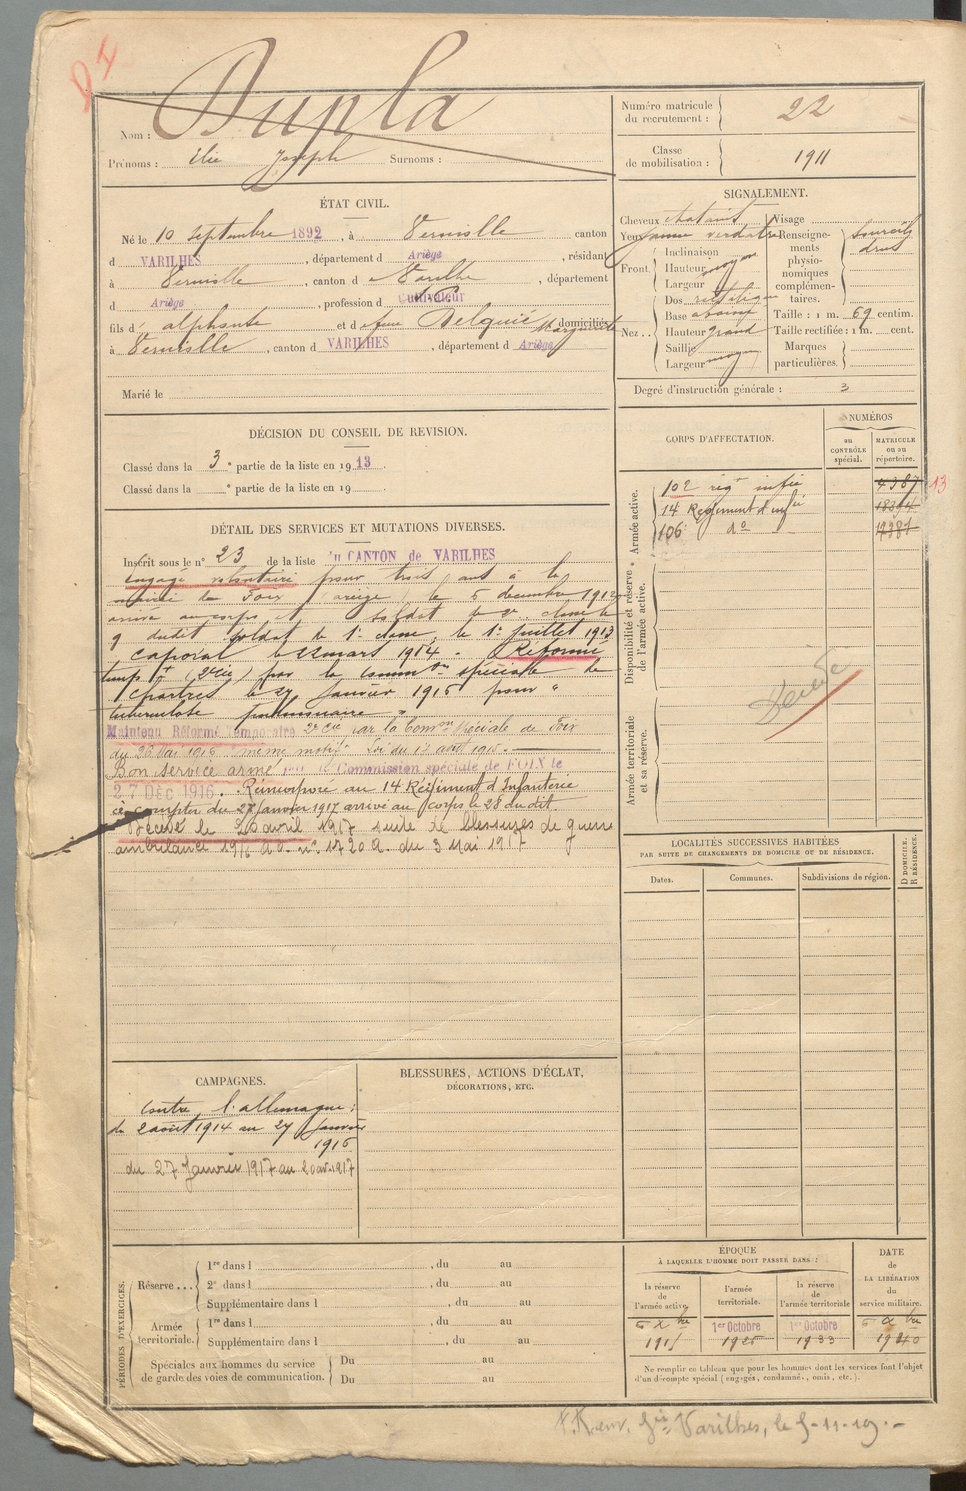 Nom : Dupla
Prénoms : Elie Joseph Surnoms :
Numéro matricule du recrutement : 22
Classe de mobilisation : 1911
ÉTAT CIVIL.
Né le 10 Septembre 1892, à Verniolle, canton
d VARILHES, département d Ariège, résidant
à Verniolle, canton d Varilhes, département
d Ariège, profession d Cultivateur
fils d' alphonse et d feue Delquié Marguerite domiciliés
à Verniolle, canton d VARILHES, département d Ariège
Marié le
SIGNALEMENT.
Cheveux chatains Visage
Yeux jaune verdatre
Front. Inclinaison
Hauteur moyen
Largeur
Nez .. Dos rectiligne
Base abaissé
Hauteur grand
Saillie
Largeur moyen
Renseignements physionomiques complémentaires. sourcils drus
Taille : 1 m. 69 centim.
Taille rectifiée : 1 m. cent.
Marques particulières.
Degré d'instruction générale : 3
DÉCISION DU CONSEIL DE REVISION.
Classé dans la 3e partie de la liste en 1913.
Classé dans la e partie de la liste en 19
CORPS D'AFFECTATION.
NUMÉROS
au CONTRÔLE spécial.
MATRICULE ou au répertoire.
Armée active.
102 régt infie 4387 13
14 Régiment d'infie
106 do
Disponibilité et réserve de l'armée active.
Armée territoriale et sa réserve.
DÉTAIL DES SERVICES ET MUTATIONS DIVERSES.
Inscrit sous le n° 23 de la liste du CANTON de VARILHES
engagé volontaire pour trois ans à la
mairie de Foix (ariège) le 5 décembre 1912
arrivé au corps et soldat de 2e classe le
9 dudit soldat de 1e classe, le 1e juillet 1913
Caporal le 22 mars 1914. Réformé
temp re (2e Cie) par la comm on spéciale de
Chartres le 27 Janvier 1915 pour "
tuberculose pulmonaire "
Maintenu Réformé Temporaire 2e Cie par la Comon spéciale de Foix
du 26 Mai 1915 même motif. Loi du 17 août 1915.
Bon service armé Commission spéciale de FOIX le
27 Déc 1916. Réincorporé au 14 Régiment d'Infanterie
à compter du 27 Janvier 1917 arrivé au corps le 28 du dit.
Décédé le 20 avril 1917 suite de blessures de guerre
ambulance 19/16 a.d. n° 1720 a. du 3 Mai 1917
LOCALITÉS SUCCESSIVES HABITÉES
PAR SUITE DE CHANGEMENTS DE DOMICILE OU DE RÉSIDENCE.
Dates. Communes. Subdivisions de région.
D DOMICILE. R RÉSIDENCE.
CAMPAGNES.
Contre l'allemagne :
du 2 août 1914 au 27 Janvier
1915
du 27 Janvier 1917 au 20 av. 1917
BLESSURES, ACTIONS D'ÉCLAT,
DÉCORATIONS, ETC.
PÉRIODES D'EXERCICES.
Réserve ... 1re dans l , du au
2e dans l , du au
Supplémentaire dans l , du au
Armée territoriale. 1re dans l , du au
Supplémentaire dans l , du au
Spéciales aux hommes du service de garde des voies de communication. Du au
Du au
ÉPOQUE
À LAQUELLE L'HOMME DOIT PASSER DANS :
la réserve de l'armée active
l'armée territoriale.
la réserve de l'armée territoriale
DATE de LA LIBÉRATION du service militaire.
5 Xbre 1915
1er Octobre 1926
1er Octobre 1933
5 Xbre 1940
Ne remplir ce tableau que pour les hommes dont les services font l'objet
d'un décompte spécial (engagés, condamné, omis, etc.).
Varilhes, le 5-11-19.-